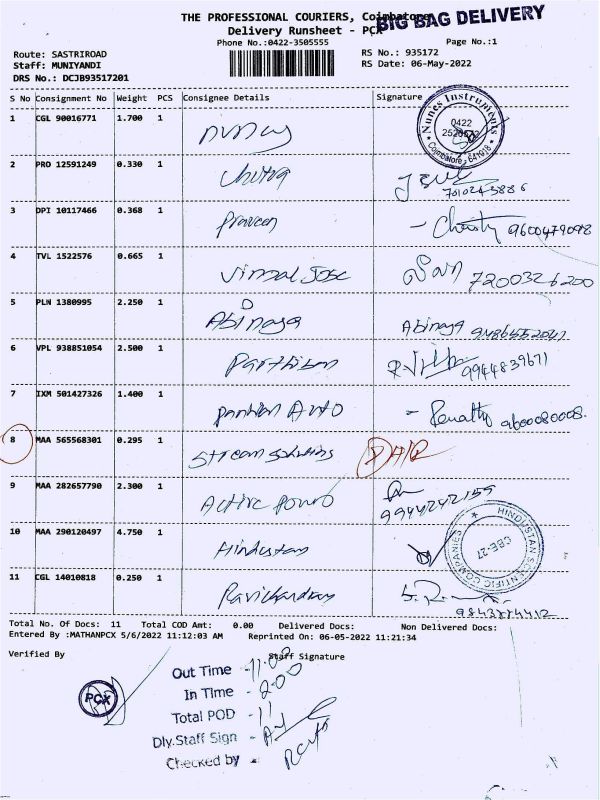 THE PROFESSIONAL COURIERS, Coimbatore
BIG BAG DELIVERY
Delivery Runsheet - PCX
Phone No.:0422-3505555
Page No.:1
Route: SASTRIROAD
RS No.: 935172
Staff: MUNIYANDI
RS Date: 06-May-2022
DRS No.: DCJB93517201
S No Consignment No Weight PCS Consignee Details Signature
1 CGL 90016771 1.700 1
Nunes Instruments 0422 Coimbatore - 641018
2 PRO 12591249 0.330 1 Chitra 7010243886
3 DPI 10117466 0.368 1 Praveen - Christy 9600479098
4 TVL 1522576 0.665 1 Vimal Jose 7200326200
5 PLN 1380995 2.250 1 Abinaya Abinaya
6 VPL 938851054 2.500 1 Parthiban 9944839671
7 IXM 501427326 1.400 1 Auto 9600080008.
8 MAA 565568301 0.295 1 Stream Solutions
9 MAA 282657790 2.300 1 Active 9944242159
10 MAA 290120497 4.750 1 Hindustan
HINDUSTAN SCIENTIFIC COMPANIES CBE-27
11 CGL 14010818 0.250 1 Ravichandran
Total No. Of Docs: 11 Total COD Amt: 0.00 Delivered Docs: Non Delivered Docs:
Entered By :MATHANPCX 5/6/2022 11:12:03 AM Reprinted On: 06-05-2022 11:21:34
Verified By Staff Signature
PCX
Out Time
In Time - 2.00
Total POD - 11
Dly.Staff Sign -
Checked by -